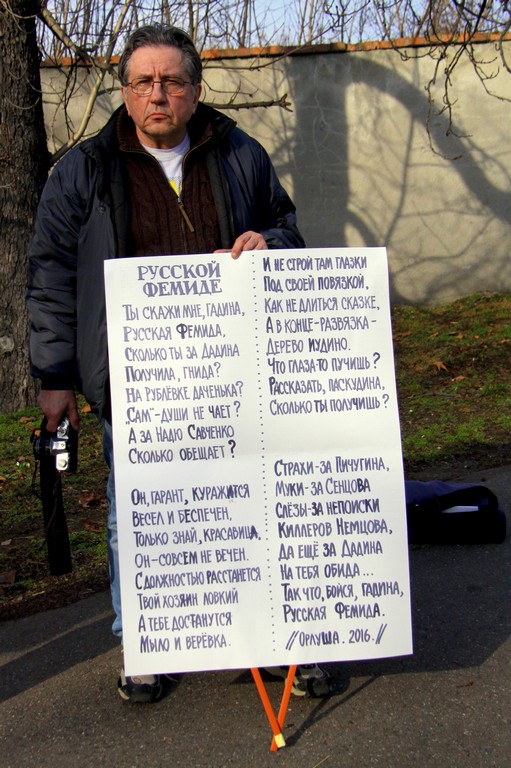 РУССКОЙ
ФЕМИДЕ
ТЫ СКАЖИ МНЕ, ГАДИНА,
РУССКАЯ ФЕМИДА,
СКОЛЬКО ТЫ ЗА ДАДИНА
ПОЛУЧИЛА, ГНИДА?
НА РУБЛЁВКЕ ДАЧЕНЬКА?
„САМ"-ДУШИ НЕ ЧАЕТ?
А ЗА НАДЮ САВЧЕНКО
СКОЛЬКО ОБЕЩАЕТ?
ОН, ГАРАНТ, КУРАЖИТСЯ
ВЕСЕЛ И БЕСПЕЧЕН,
ТОЛЬКО ЗНАЙ, КРАСАВИЦА,
ОН-СОВСЕМ НЕ ВЕЧЕН.
С ДОЛЖНОСТЬЮ РАССТАНЕТСЯ
ТВОЙ ХОЗЯИН ЛОВКИЙ
А ТЕБЕ ДОСТАНУТСЯ
МЫЛО И ВЕРЁВКА.
И НЕ СТРОЙ ТАМ ГЛАЗКИ
ПОД СВОЕЙ ПОВЯЗКОЙ,
КАК НЕ ДЛИТЬСЯ СКАЗКЕ,
А В КОНЦЕ-РАЗВЯЗКА-
ДЕРЕВО ИУДИНО.
ЧТО ГЛАЗА-ТО ПУЧИШЬ?
РАССКАЗАТЬ, ПАСКУДИНА,
СКОЛЬКО ТЫ ПОЛУЧИШЬ?
СТРАХИ-ЗА ПИЧУГИНА,
МУКИ-ЗА СЕНЦОВА
СЛЁЗЫ-ЗА НЕПОИСКИ
КИЛЛЕРОВ НЕМЦОВА,
ДА ЕЩЁ ЗА ДАДИНА
НА ТЕБЯ ОБИДА...
ТАК ЧТО, БОЙСЯ, ГАДИНА,
РУССКАЯ ФЕМИДА.
//ОРЛУША. 2016.//